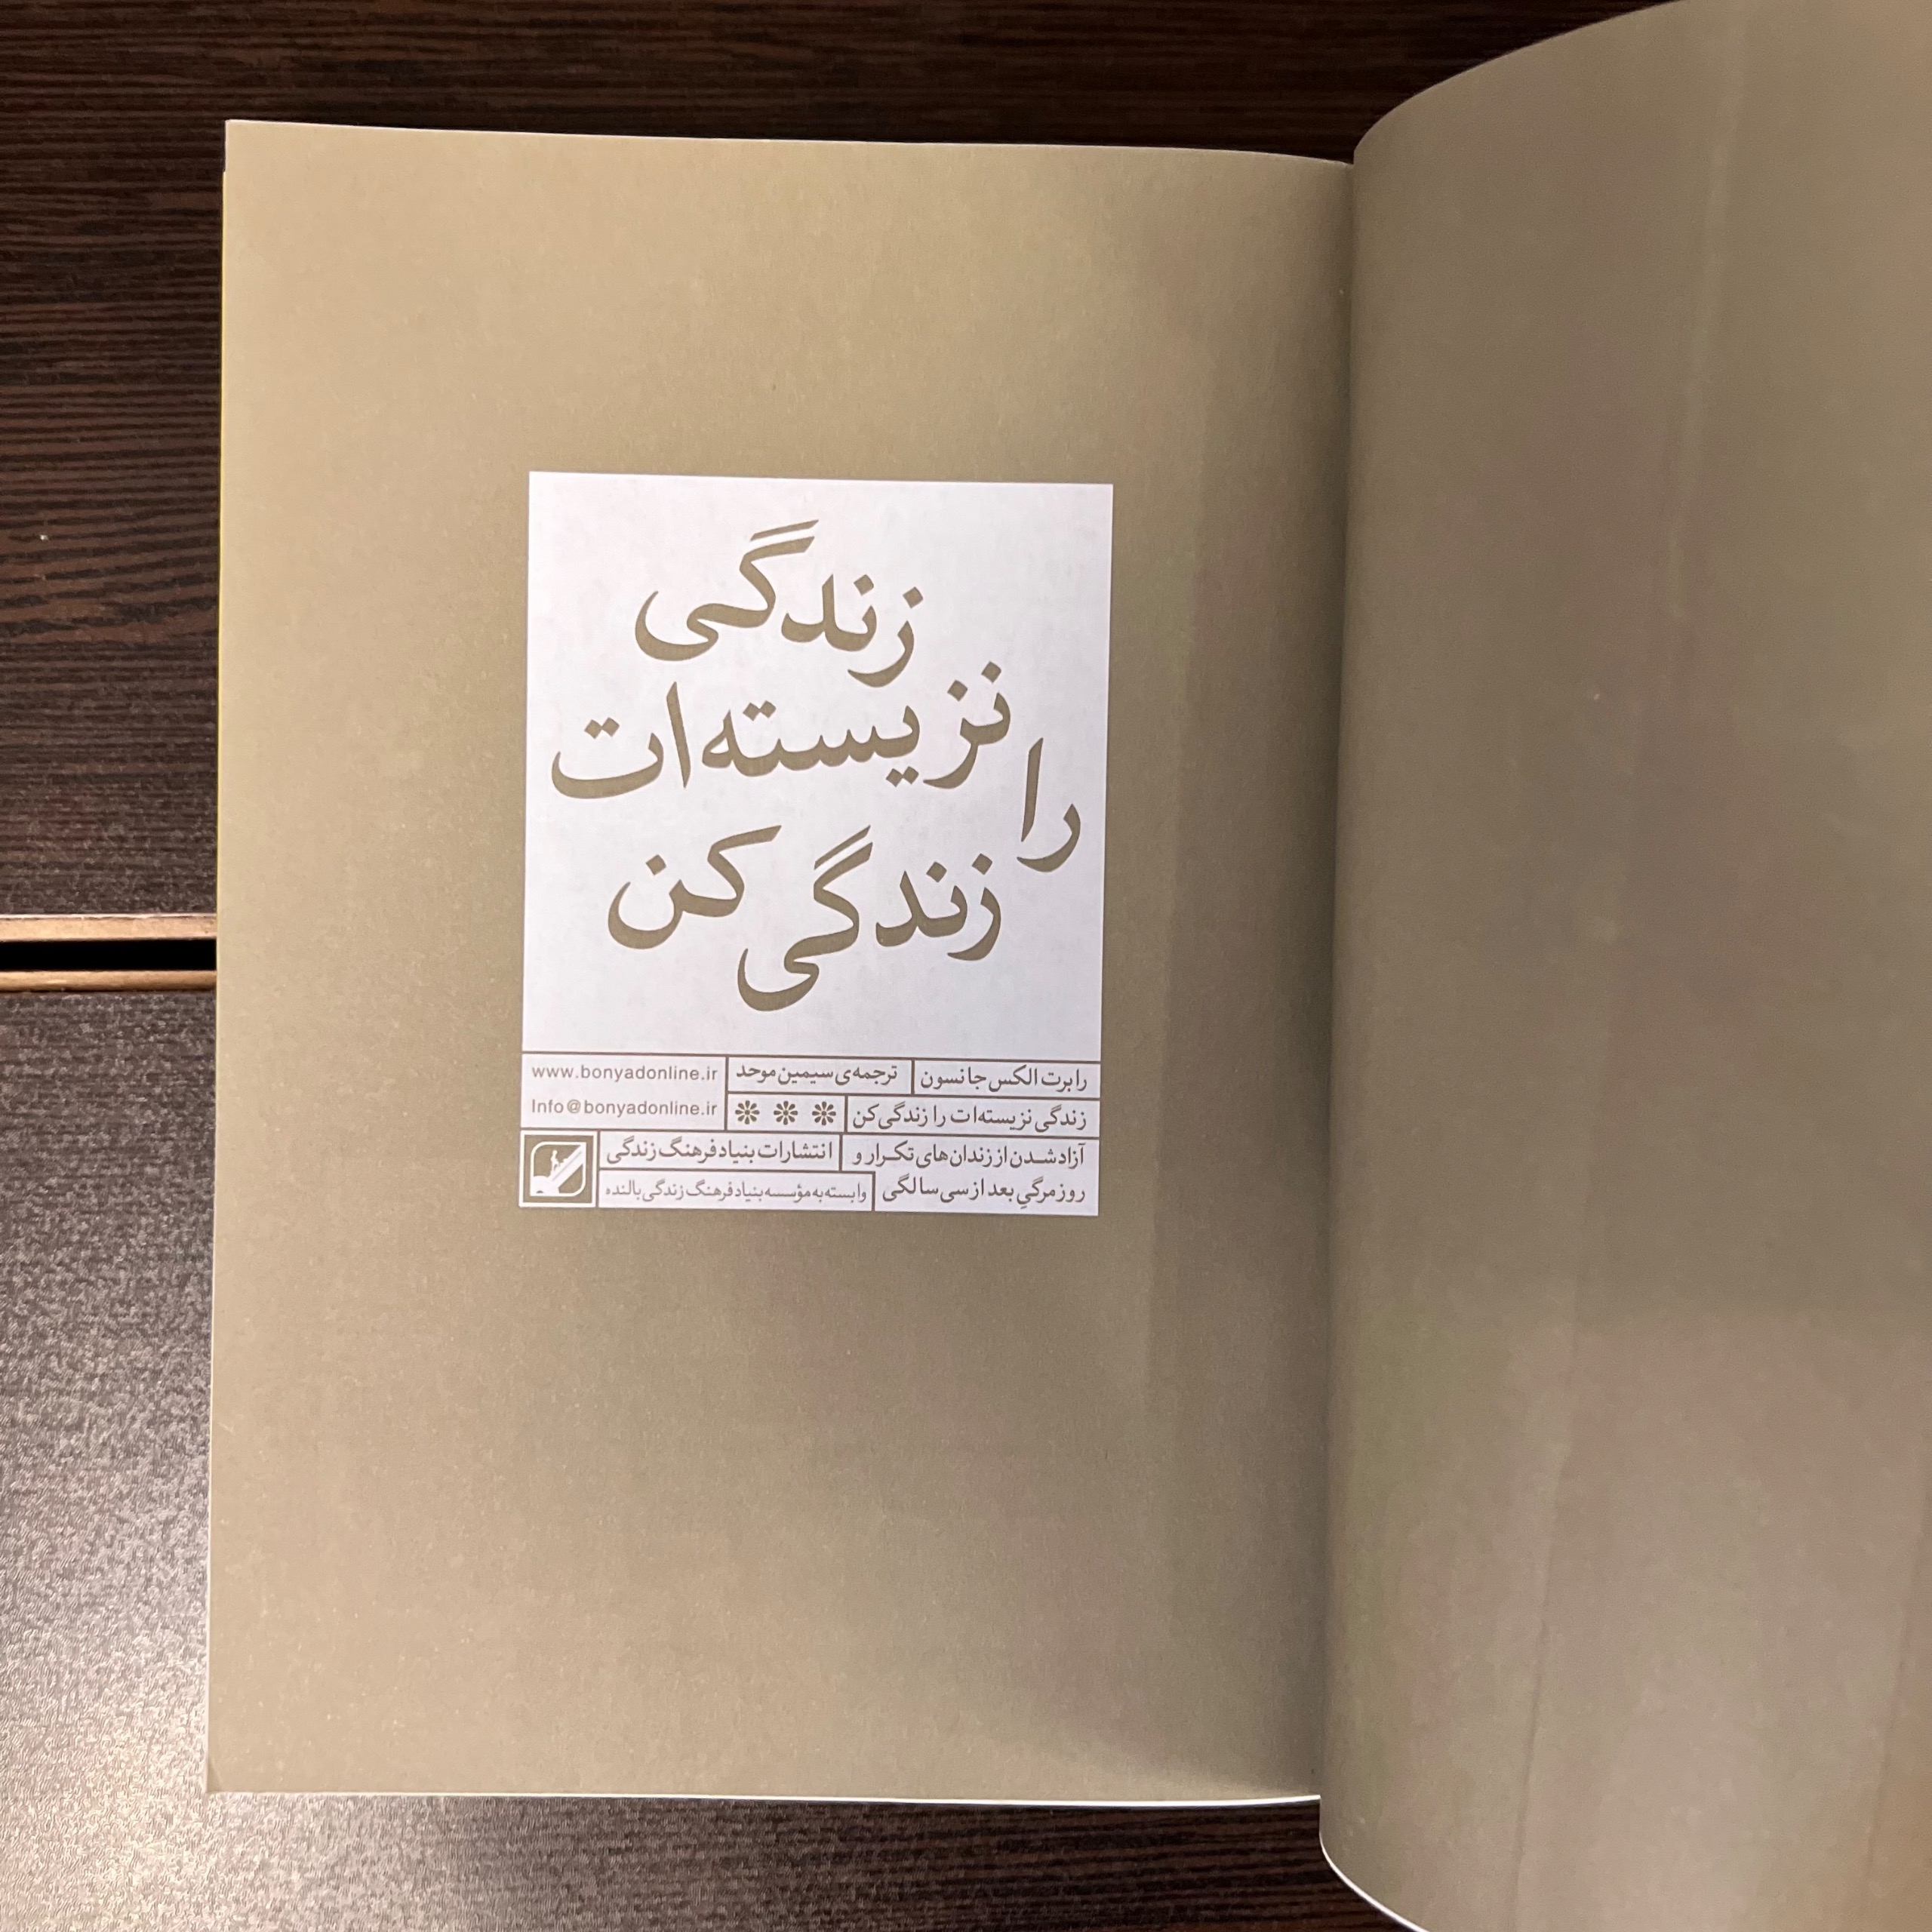 زندگی
نزیسته‌ات
را
زندگی کن
رابرت الکس جانسون
ترجمه‌ی سیمین موحد
www.bonyadonline.ir
زندگی نزیسته‌ات را زندگی کن
Info@bonyadonline.ir
آزاد شدن از زندان‌های تکرار و
روزمرگیِ بعد از سی سالگی
انتشارات بنیاد فرهنگ زندگی
وابسته به مؤسسه بنیاد فرهنگ زندگی بالنده